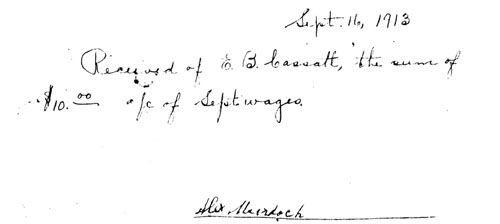 Sept. 16, 1913
Received of E. B. Cassatt, the sum of
$10.00 a/c of Sept wages.
Alex Murdoch